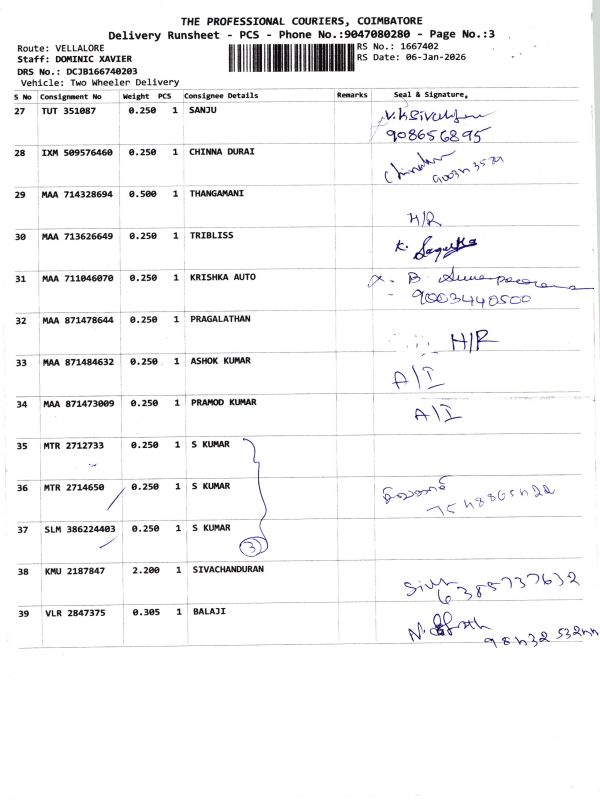 THE PROFESSIONAL COURIERS, COIMBATORE
Delivery Runsheet - PCS - Phone No.:9047080280 - Page No.:3
Route: VELLALORE RS No.: 1667402
Staff: DOMINIC XAVIER RS Date: 06-Jan-2026
DRS No.: DCJB166740203
Vehicle: Two Wheeler Delivery
S No Consignment No Weight PCS Consignee Details Remarks Seal & Signature,
27 TUT 351087 0.250 1 SANJU
908656895
28 IXM 509576460 0.250 1 CHINNA DURAI
29 MAA 714328694 0.500 1 THANGAMANI
H/R
30 MAA 713626649 0.250 1 TRIBLISS K.
31 MAA 711046070 0.250 1 KRISHKA AUTO B.
9003440500
32 MAA 871478644 0.250 1 PRAGALATHAN
H/R
33 MAA 871484632 0.250 1 ASHOK KUMAR A/I
34 MAA 871473009 0.250 1 PRAMOD KUMAR A/I
35 MTR 2712733 0.250 1 S KUMAR
36 MTR 2714650 0.250 1 S KUMAR
37 SLM 386224403 0.250 1 S KUMAR
3
38 KMU 2187847 2.200 1 SIVACHANDURAN
6385737632
39 VLR 2847375 0.305 1 BALAJI N.